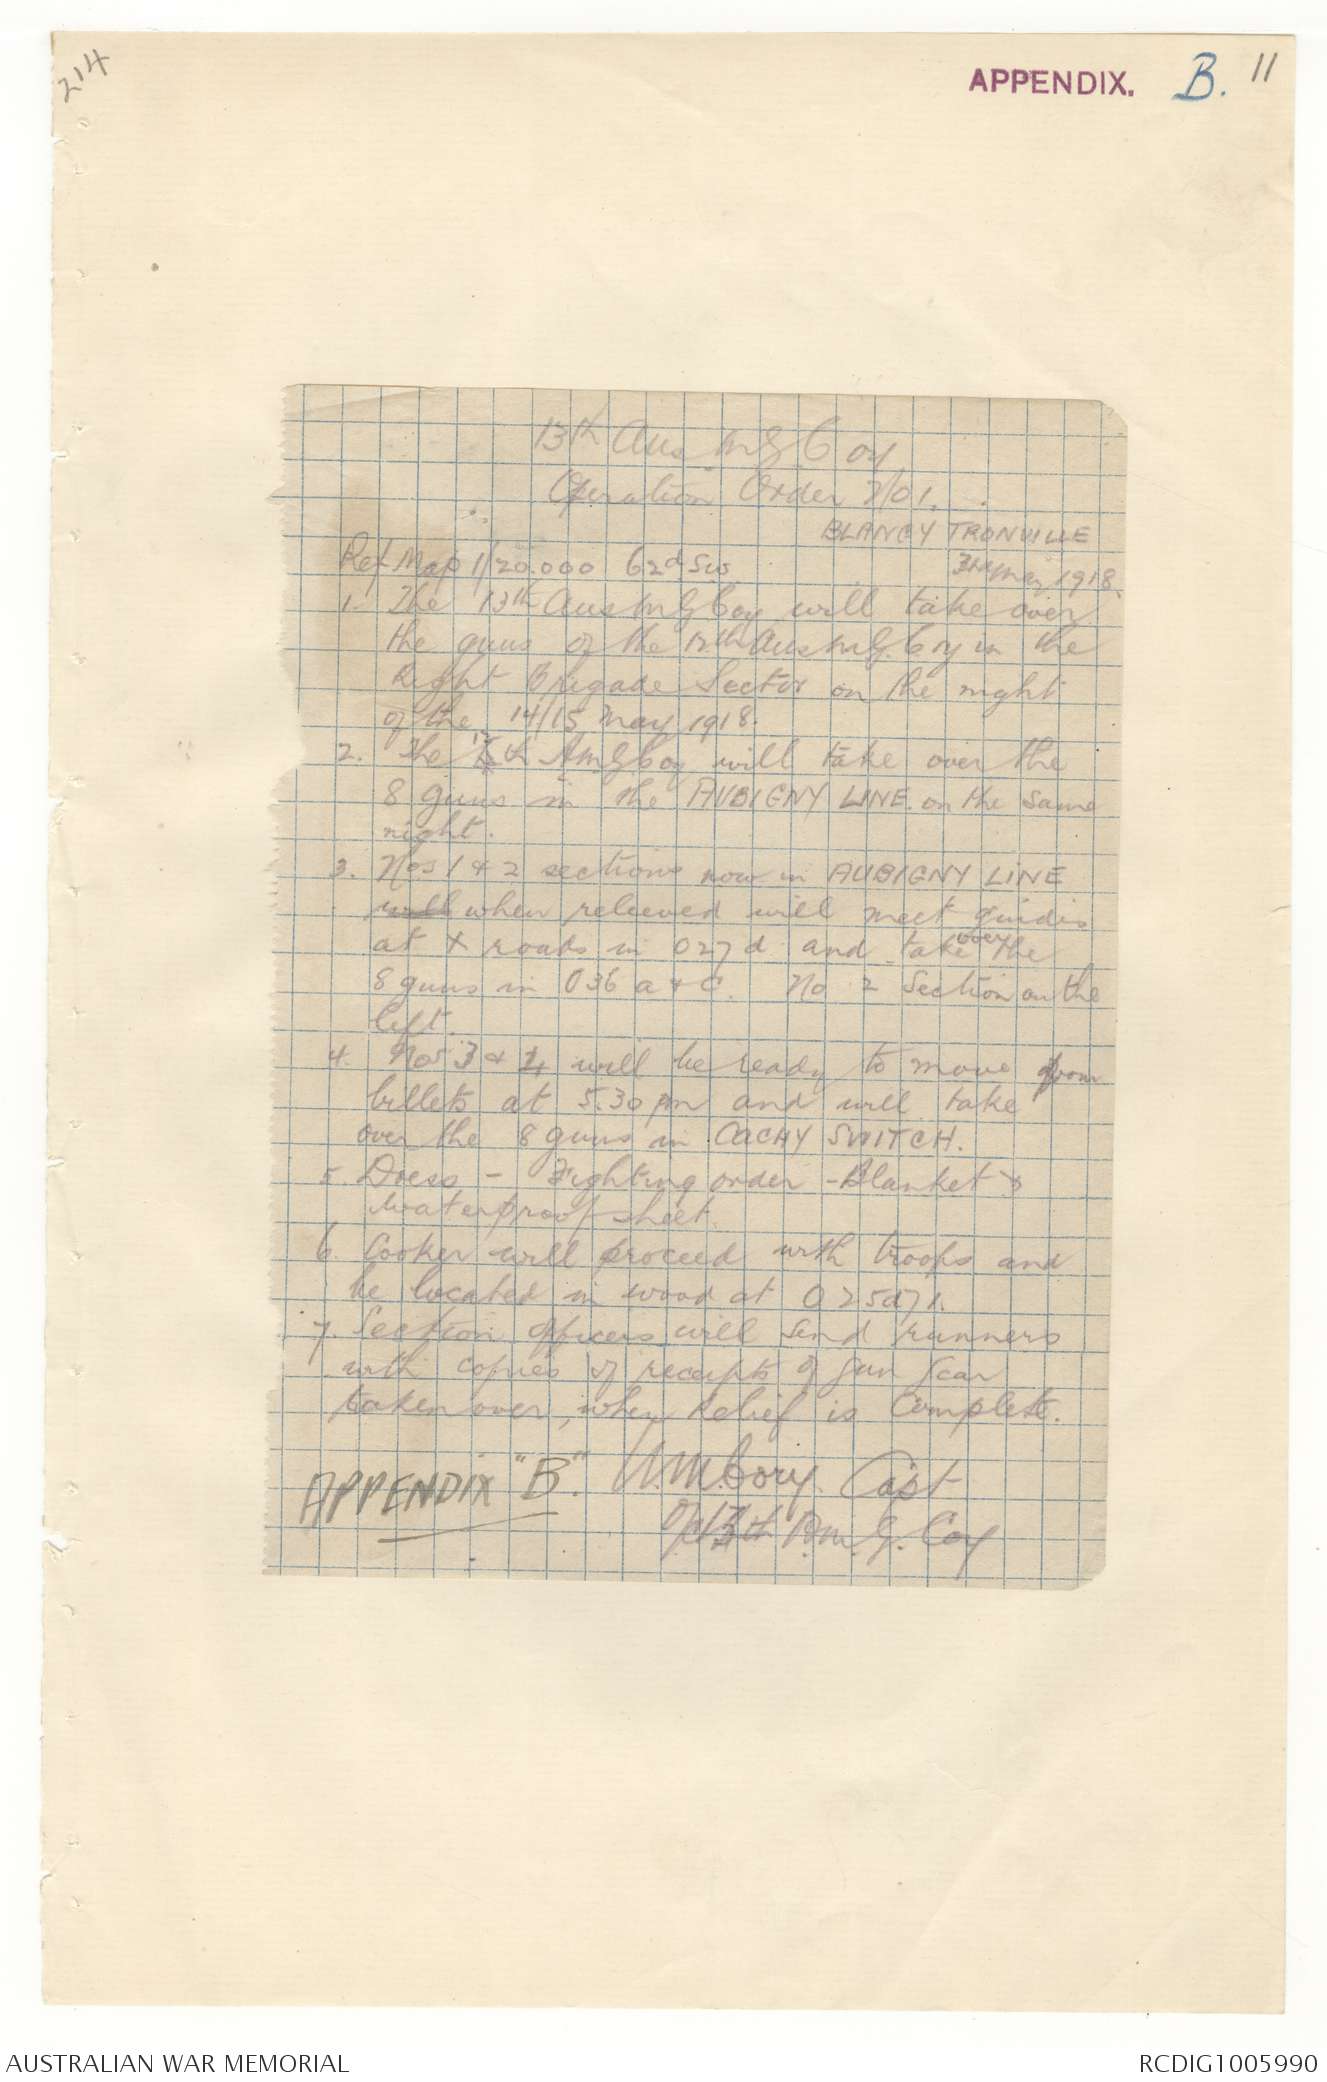 214
APPENDIX. B. 11
13th Aus M G Coy
Operation Order No 1.
BLANGY TRONVILLE
May 1918.
Ref Map 1/20.000 62d S.W.
1. The 13th Aus M G Coy will take over
the guns of the 12th Aus M.G. Coy in the
Right Brigade Sector on the night
of the 14/15 May 1918.
2. The 12th A M G Coy will take over the
8 guns in the AUBIGNY LINE on the same
night.
3. Nos 1 & 2 sections now in AUBIGNY LINE
will when relieved will meet guides
at X roads in O27 d and take over the
8 guns in O36 a & c. No 2 Section on the
left.
4. Nos 3 & 4 will be ready to move from
billets at 5.30 pm and will take
over the 8 guns in CACHY SWITCH.
5. Dress - Fighting order - Blanket &
waterproof sheet.
6. Cooker will proceed with troops and
be located in wood at O25d71.
7. Section officers will send runners
with copies of receipts of gun gear
taken over, when Relief is Complete.
APPENDIX "B". Cory Capt
OC 13th A.M.G. Coy
AUSTRALIAN WAR MEMORIAL RCDIG1005990